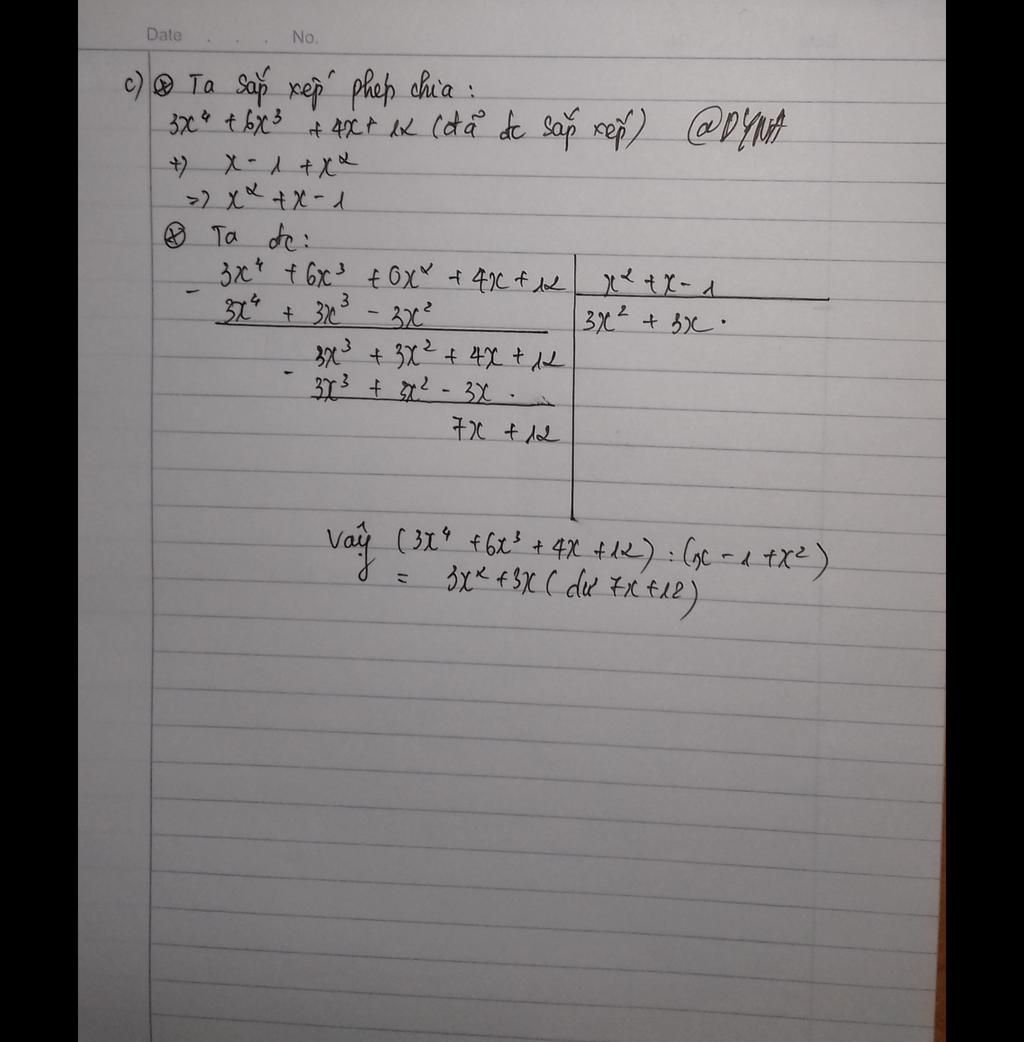 Date . . . No.
c) ⊛ Ta sắp xếp phép chia :
3x⁴ + 6x³ + 4x + 12 (đã đc sắp xếp) @DYNA
+) x - 1 + x²
=> x² + x - 1
⊛ Ta đc :
- 3x⁴ + 6x³ + 0x² + 4x + 12 | x² + x - 1
3x⁴ + 3x³ - 3x² | 3x² + 3x .
3x³ + 3x² + 4x + 12
- 3x³ + 3x² - 3x .
7x + 12
Vậy (3x⁴ + 6x³ + 4x + 12) : (x - 1 + x²)
= 3x² + 3x ( dư 7x + 12)